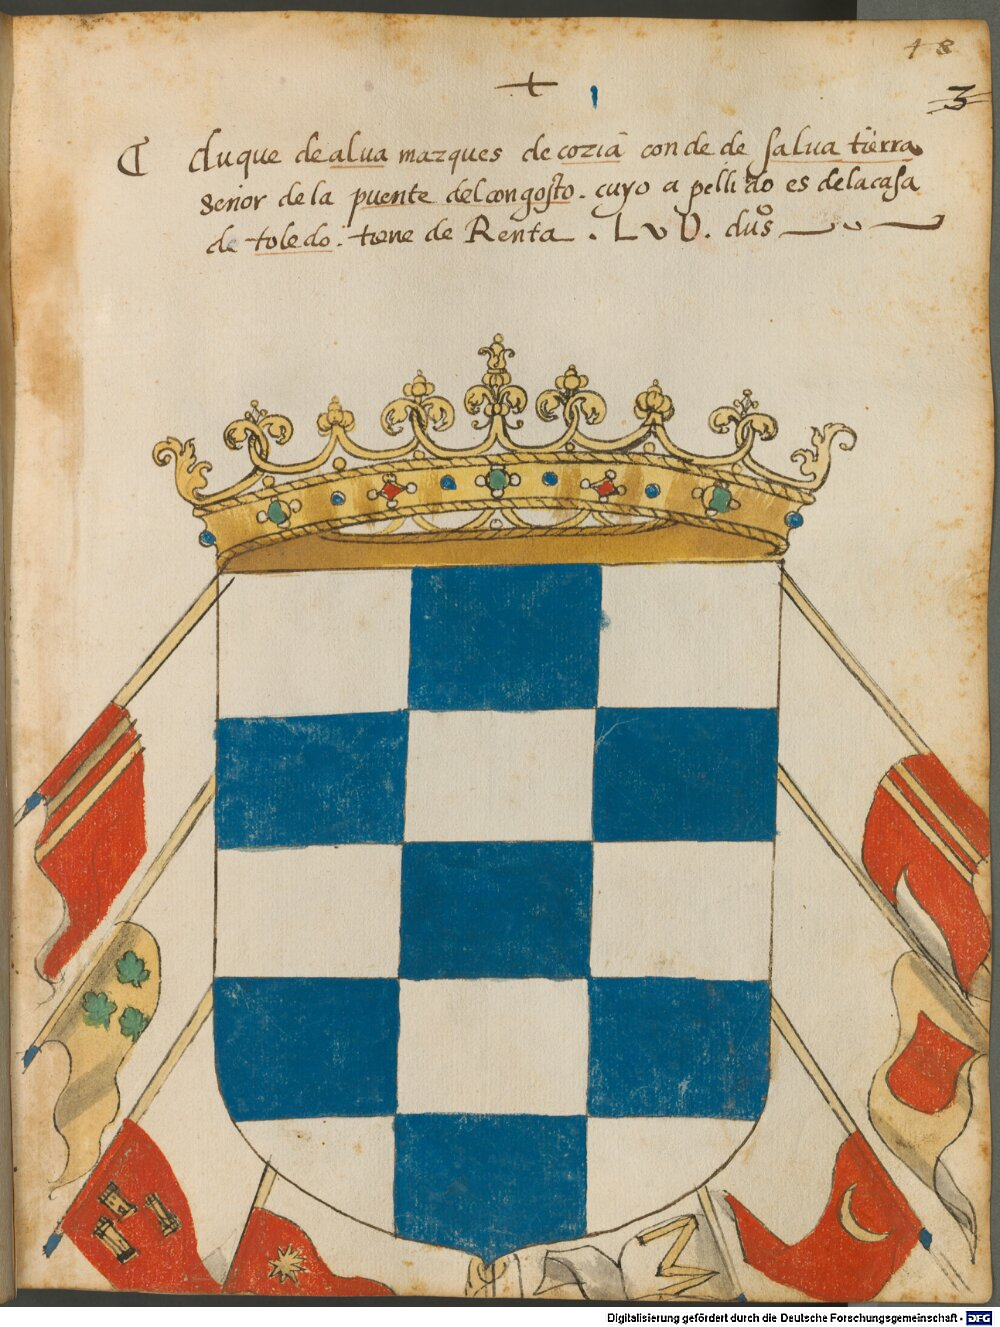 48
3
duque de alua mazques de cozia conde de salua tierra
Senor de la puente del congosto. cuyo apellido es dela casa
de toledo. tiene de Renta. L v U. duos
Digitalisierung gefördert durch die Deutsche Forschungsgemeinschaft - DFG